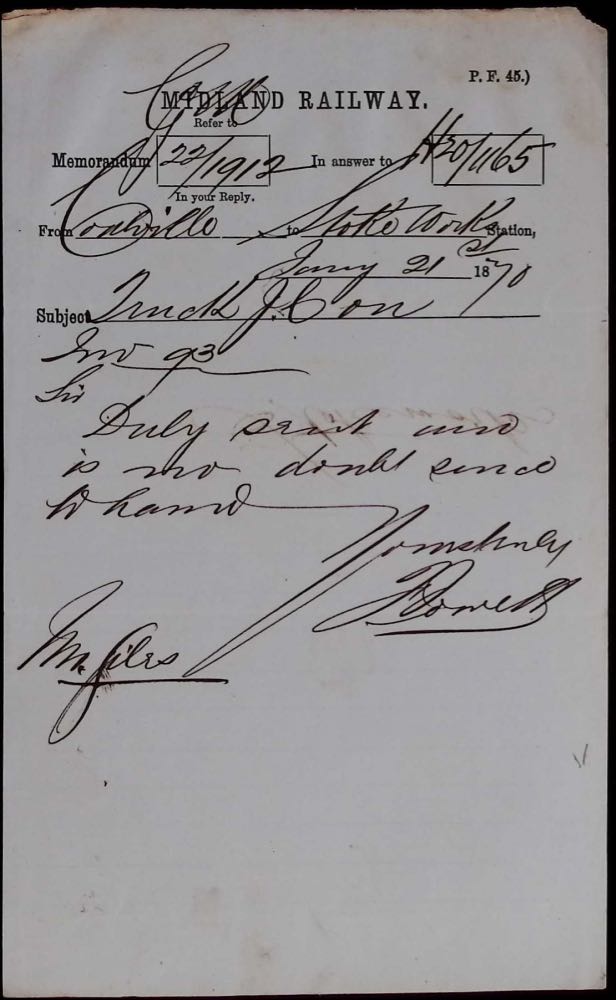 P. F. 45.)
MIDLAND RAILWAY.
Refer to
Memorandum 22/1912 In answer to H20/1165
In your Reply.
From Coalville to Stoke Works Station,
Jany 21st 1870
Subject Truck J. Con
Inv 93
Sir
Duly sent and
is no doubt since
to hand
Yours truly
Mr. Giles